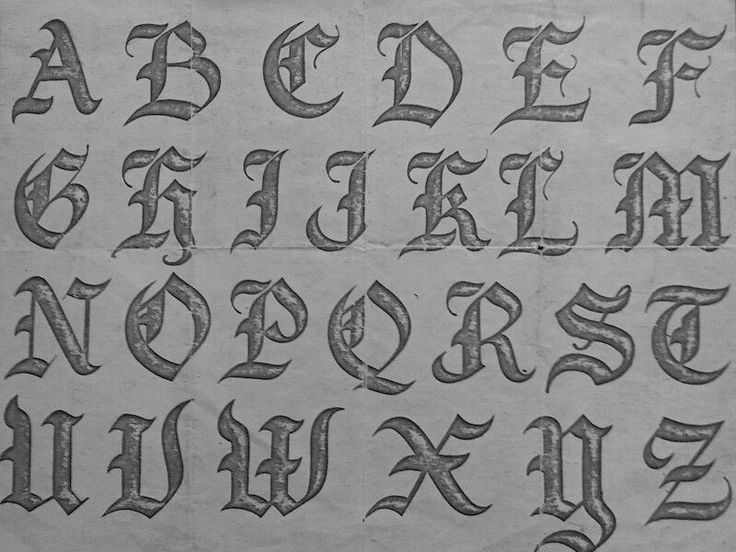 A B C D E F
G H I J K L M
N O P Q R S T
U V W X Y Z